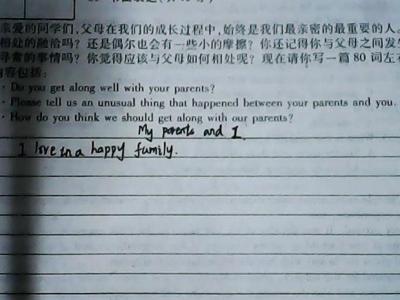 亲爱的同学们,父母在我们的成长过程中,始终是我们最亲密的最重要的人。
相处的融洽吗?还是偶尔也会有一些小的摩擦?你还记得你与父母之间发生
寻常的事情吗?你觉得应该与父母如何相处呢?现在请你写一篇 80 词左右
内容包括:
· Do you get along well with your parents?
· Please tell us an unusual thing that happened between your parents and you.
· How do you think we should get along with our parents?
My parents and I
I love in a happy family.